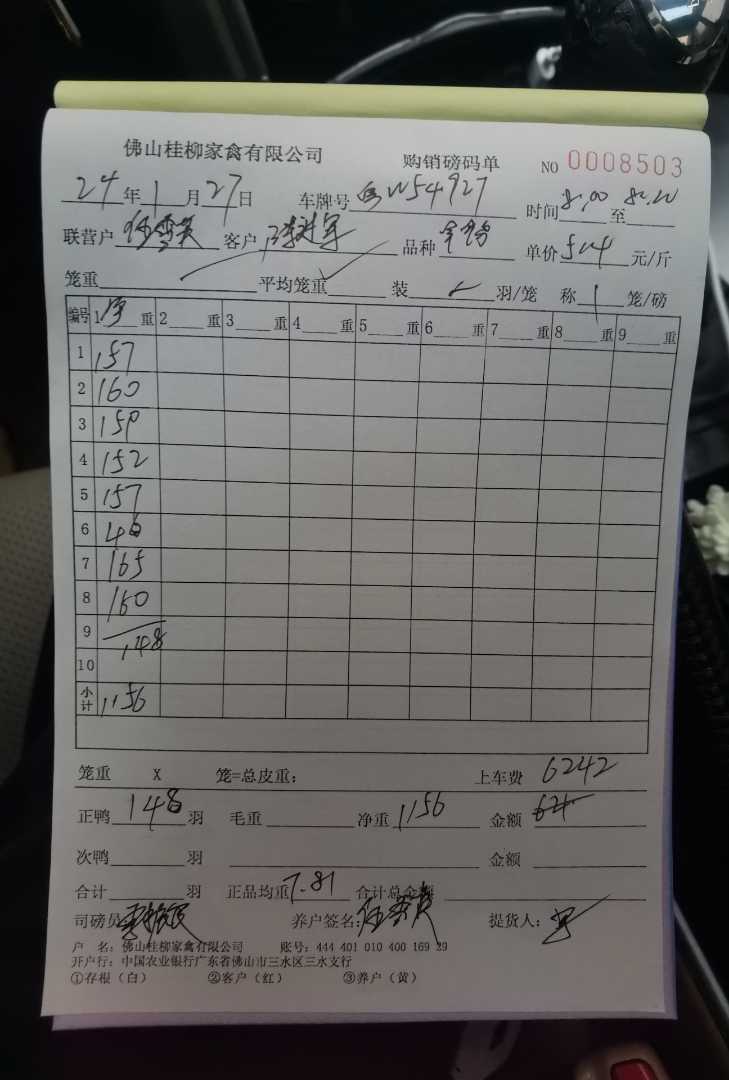 佛山桂柳家禽有限公司 购销磅码单 NO 0008503
24年1月27日 车牌号 W54927 时间8:00至
联营户 客户 品种 单价5.4元/斤
笼重 平均笼重 装 羽/笼 称1笼/磅
编号 1 重 2 重 3 重 4 重 5 重 6 重 7 重 8 重 9 重
1 157
2 160
3 159
4 152
5 157
6 46
7 165
8 160
9 148
10
小计 1156
笼重 X 笼=总皮重: 上车费 6242
正鸭 148 羽 毛重 净重 1156 金额 624
次鸭 羽 金额
合计 羽 正品均重 7.81 合计总金额
司磅员: 养户签名: 提货人:
户 名: 佛山桂柳家禽有限公司 账号: 444 401 010 400 169 29
开户行: 中国农业银行广东省佛山市三水区三水支行
①存根（白） ②客户（红） ③养户（黄）